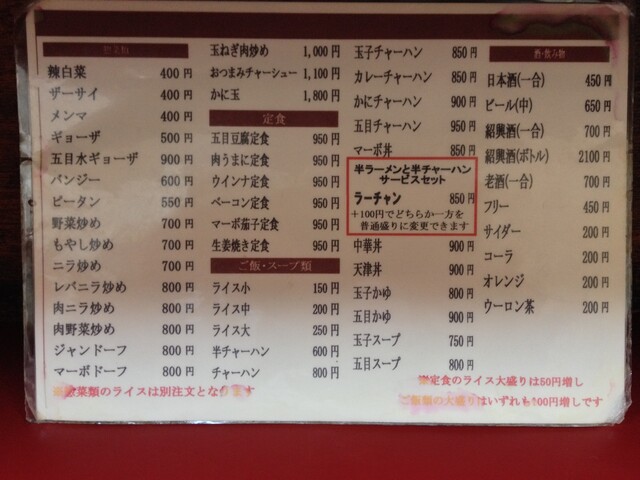 惣菜類
辣白菜 400円
ザーサイ 400円
メンマ 400円
ギョーザ 500円
五目水ギョーザ 900円
バンジー 600円
ピータン 550円
野菜炒め 700円
もやし炒め 700円
ニラ炒め 700円
レバニラ炒め 800円
肉ニラ炒め 800円
肉野菜炒め 800円
ジャンドーフ 800円
マーボドーフ 800円
※惣菜類のライスは別注文となります
玉ねぎ肉炒め 1,000円
おつまみチャーシュー 1,100円
かに玉 1,800円
定食
五目豆腐定食 950円
肉うまに定食 950円
ウインナ定食 950円
ベーコン定食 950円
マーボ茄子定食 950円
生姜焼き定食 950円
ご飯・スープ類
ライス小 150円
ライス中 200円
ライス大 250円
半チャーハン 600円
チャーハン 800円
玉子チャーハン 850円
カレーチャーハン 850円
かにチャーハン 900円
五目チャーハン 950円
マーボ丼 850円
半ラーメンと半チャーハン
サービスセット
ラーチャン 850円
+100円でどちらか一方を
普通盛りに変更できます
中華丼 900円
天津丼 900円
玉子かゆ 800円
五目かゆ 900円
玉子スープ 750円
五目スープ 800円
酒・飲み物
日本酒(一合) 450円
ビール(中) 650円
紹興酒(一合) 700円
紹興酒(ボトル) 2100円
老酒(一合) 700円
フリー 450円
サイダー 200円
コーラ 200円
オレンジ 200円
ウーロン茶 200円
※定食のライス大盛りは50円増し
ご飯類の大盛りはいずれも100円増しです